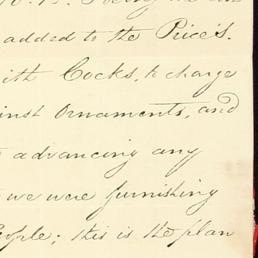 added to the Price's.
with Cocks, to charge
Ornaments, and
advancing any
we were furnishing
People; this is the plan